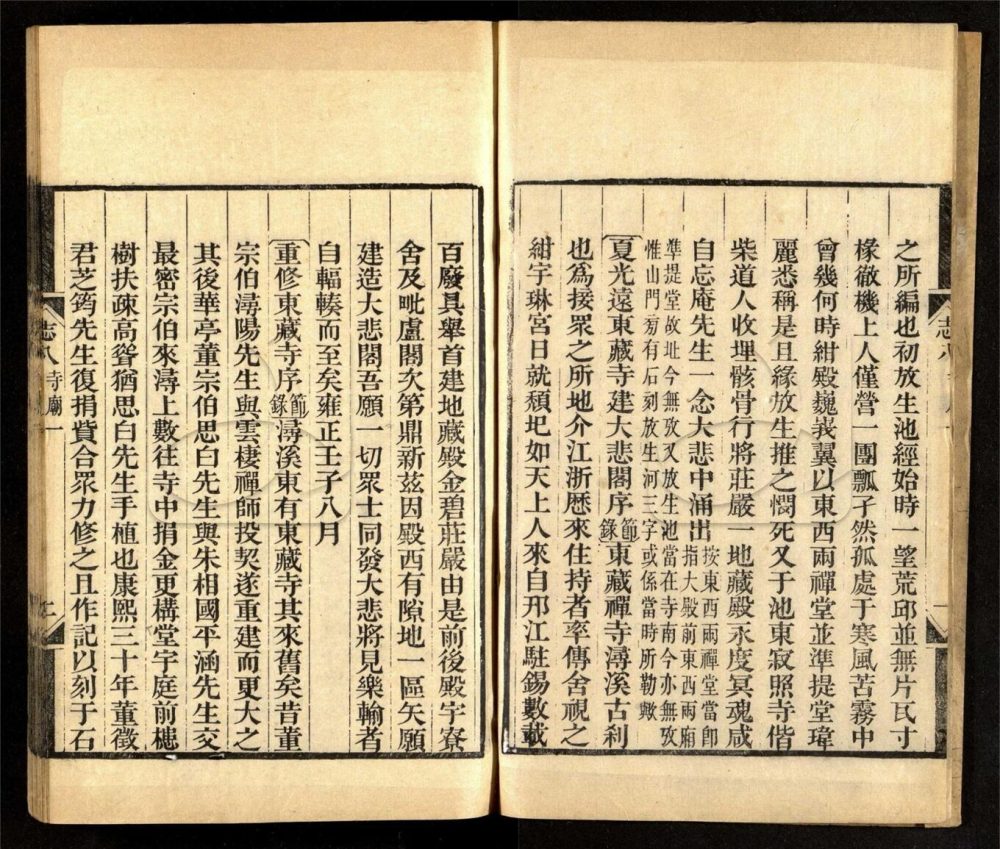 之所編也初放生池經始時一望荒邱並無片瓦寸
椽徹機上人僅營一團瓢孑然孤處于寒風苦霧中
曾幾何時紺殿巍峩翼以東西兩禪堂並準提堂瑋
麗悉稱是且緣放生推之憫死又于池東寂照寺偕
柴道人收埋骸骨行將莊嚴一地藏殿永度冥魂咸
自忘庵先生一念大悲中涌出按東西兩禪堂當卽指大殿前東西兩廂
準提堂故址今無攷又放生池當在寺南今亦無攷
惟山門旁有石刻放生河三字或係當時所勒歟
夏光遠東藏寺建大悲閣序節錄東藏禪寺潯溪古刹
也爲接眾之所地介江浙歷來住持者率傳舍視之
紺宇琳宮日就頹圯如天上人來自邗江駐錫數載
志八
一
百廢具舉首建地藏殿金碧莊嚴由是前後殿宇寮
舍及毗盧閣次第鼎新茲因殿西有隙地一區矢願
建造大悲閣吾願一切眾士同發大悲將見樂輸者
自輻輳而至矣雍正壬子八月
重修東藏寺序節錄潯溪東有東藏寺其來舊矣昔董
宗伯潯陽先生與雲棲禪師投契遂重建而更大之
其後華亭董宗伯思白先生與朱相國平涵先生交
最密宗伯來潯上數往寺中捐金更構堂宇庭前檍
樹扶疎高聳猶思白先生手植也康熙三十年董徵
君芝筠先生復捐貲合眾力修之且作記以刻于石
志八 寺廟一